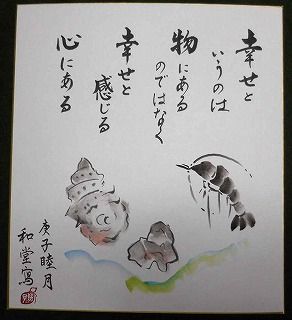 幸せと
いうのは
物にある
のではなく
幸せと
感じる
心にある
庚子睦月
和堂寫